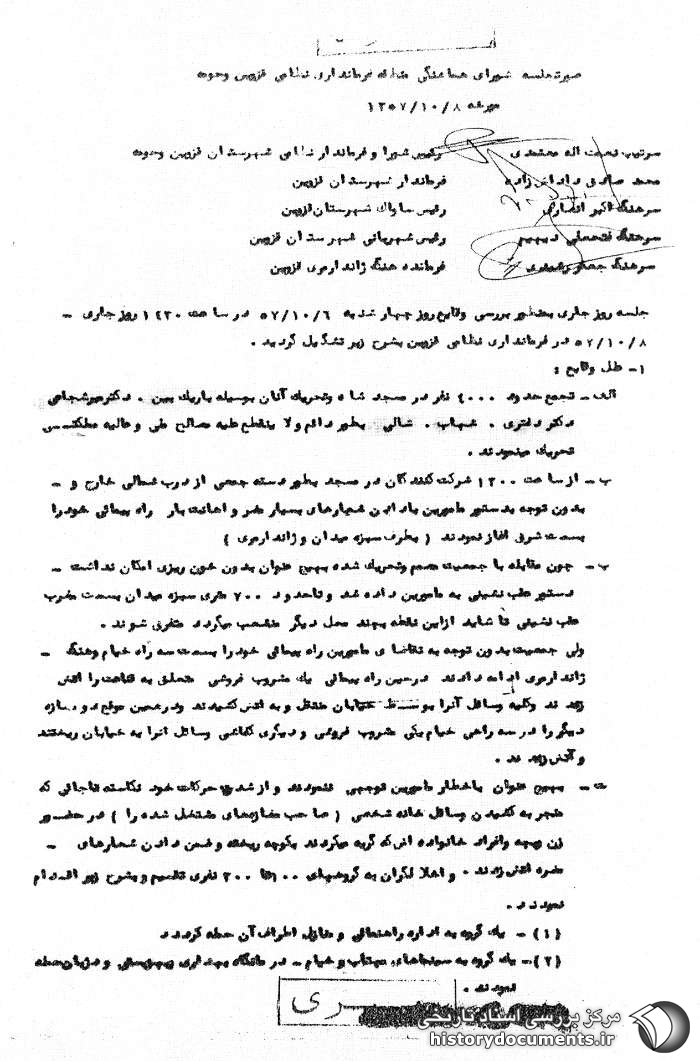 صورتجلسه شورای هماهنگی منطقه فرمانداری نظامی قزوین وحومه
مورخه ۱۳۵۷/۱۰/۸
سرتیپ نعمت اله معتمدی رئیس شورا و فرماندار نظامی شهرستان قزوین وحومه
محمد صادق فرماندار شهرستان قزوین
سرهنگ اکبر انصاری رئیس ساواک شهرستان قزوین
سرهنگ فتحعلی دیهیم رئیس شهربانی شهرستان قزوین
سرهنگ جعفر فرمانده هنگ ژاندارمری قزوین
جلسه روز جاری بمنظور بررسی وقایع روز چهارشنبه ۵۷/۱۰/۶ در ساعت ۱۴۳۰ روز جاری -
۵۷/۱۰/۸ در فرمانداری نظامی قزوین بشرح زیر تشکیل گردید .
۱- علل وقایع :
الف - تجمع حدود ۴۰۰۰ نفر در مسجد شاه وتحریک آنان بوسیله باریک بین . دکتر میرشجاعی
دکتر دفتری . شهاب . شالی بطور دائم ولا ینقطع علیه مصالح ملی و عالیه مملکتی
تحریک مینمودند .
ب - از ساعت ۱۲۰۰ شرکت کنندگان در مسجد بطور دسته جمعی از درب شمالی خارج و -
بدون توجه بدستور مامورین با دادن شعارهای بسیار مضر و اهانت بار راه پیمائی خود را
بسمت شرق آغاز نمودند ( بطرف سبزه میدان و ژاندارمری )
پ - چون مقابله با جمعیت مصمم وتحریک شده بهیچ عنوان بدون خون ریزی امکان نداشت -
دستور عقب نشینی به مامورین داده شد و تا حدود ۷۰۰ متری سبزه میدان بسمت مغرب
عقب نشینی تا شاید از این نقطه بچند محل دیگر منشعب میگردد متفرق شوند .
ولی جمعیت بدون توجه به تقاضای مامورین راه پیمائی خود را بسمت سه راه خیام وهنگ -
ژاندارمری ادامه دادند در حین راه پیمائی یک مشروب فروشی متعلق به را آتش
زدند وکلیه وسائل آنرا بوسط خیابان منتقل و به آتش کشیدند و در همین موقع دو مغازه
دیگر را در سه راهی خیام یکی مشروب فروشی و دیگری کفاشی وسائل آنرا به خیابان ریختند
و آتش زدند .
ت - بهیچ عنوان باخطار مامورین توجهی ننمودند و از شدت حرکات خود نکاسته تاجائی که
منجر به کشیدن وسائل خانه شخصی ( صاحب مغازه‌های مشتعل شده را ) در حضور
زن وبچه وافراد خانواده اش که گریه میکردند بکوچه ریخته و ضمن دادن شعارهای -
مضره آتش زدند . و اخلالگران به گروههای ۱۰۰ تا ۲۰۰ نفری تقسیم و بشرح زیر اقدام
نمودند .
(۱) - یک گروه به اداره راهنمائی و منازل اطراف آن حمله کردند
(۲) - یک گروه به سینماهای مهتاب و خیام - درمانگاه بهداری بهزیستی و حمله
نمودند .
سری
مرکز بررسی اسناد تاریخی
historydocuments.ir